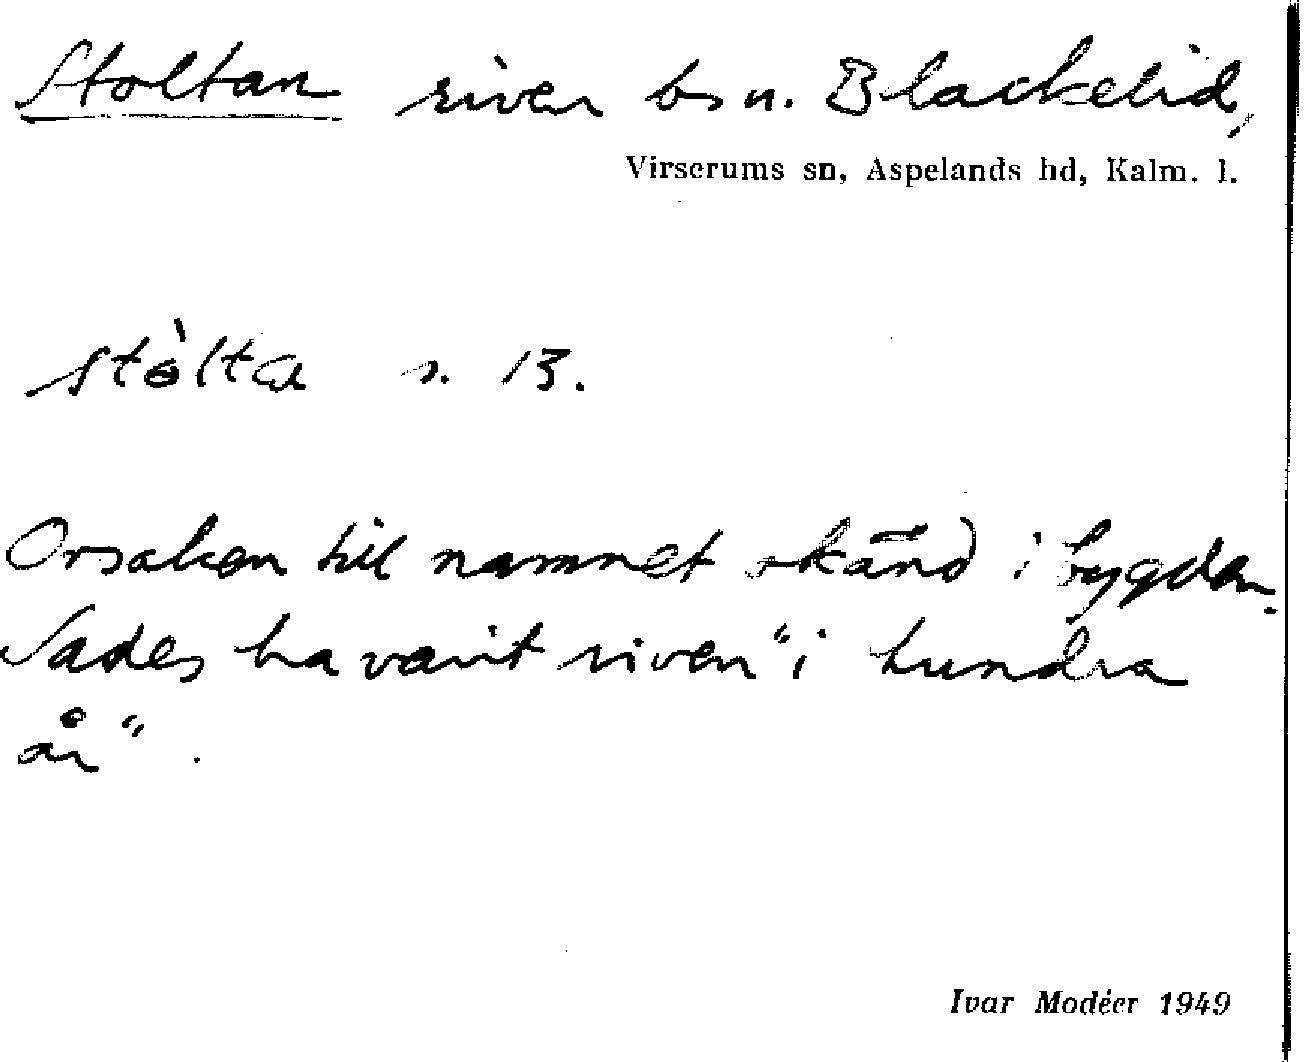 Stoltan riven bs n. Blackelid,
Virserums sn, Aspelands hd, Kalm. l.
stòlta s. 13.
Orsaken till namnet okänd i bygden.
Sades ha varit riven "i hundra
år".
Ivar Modéer 1949